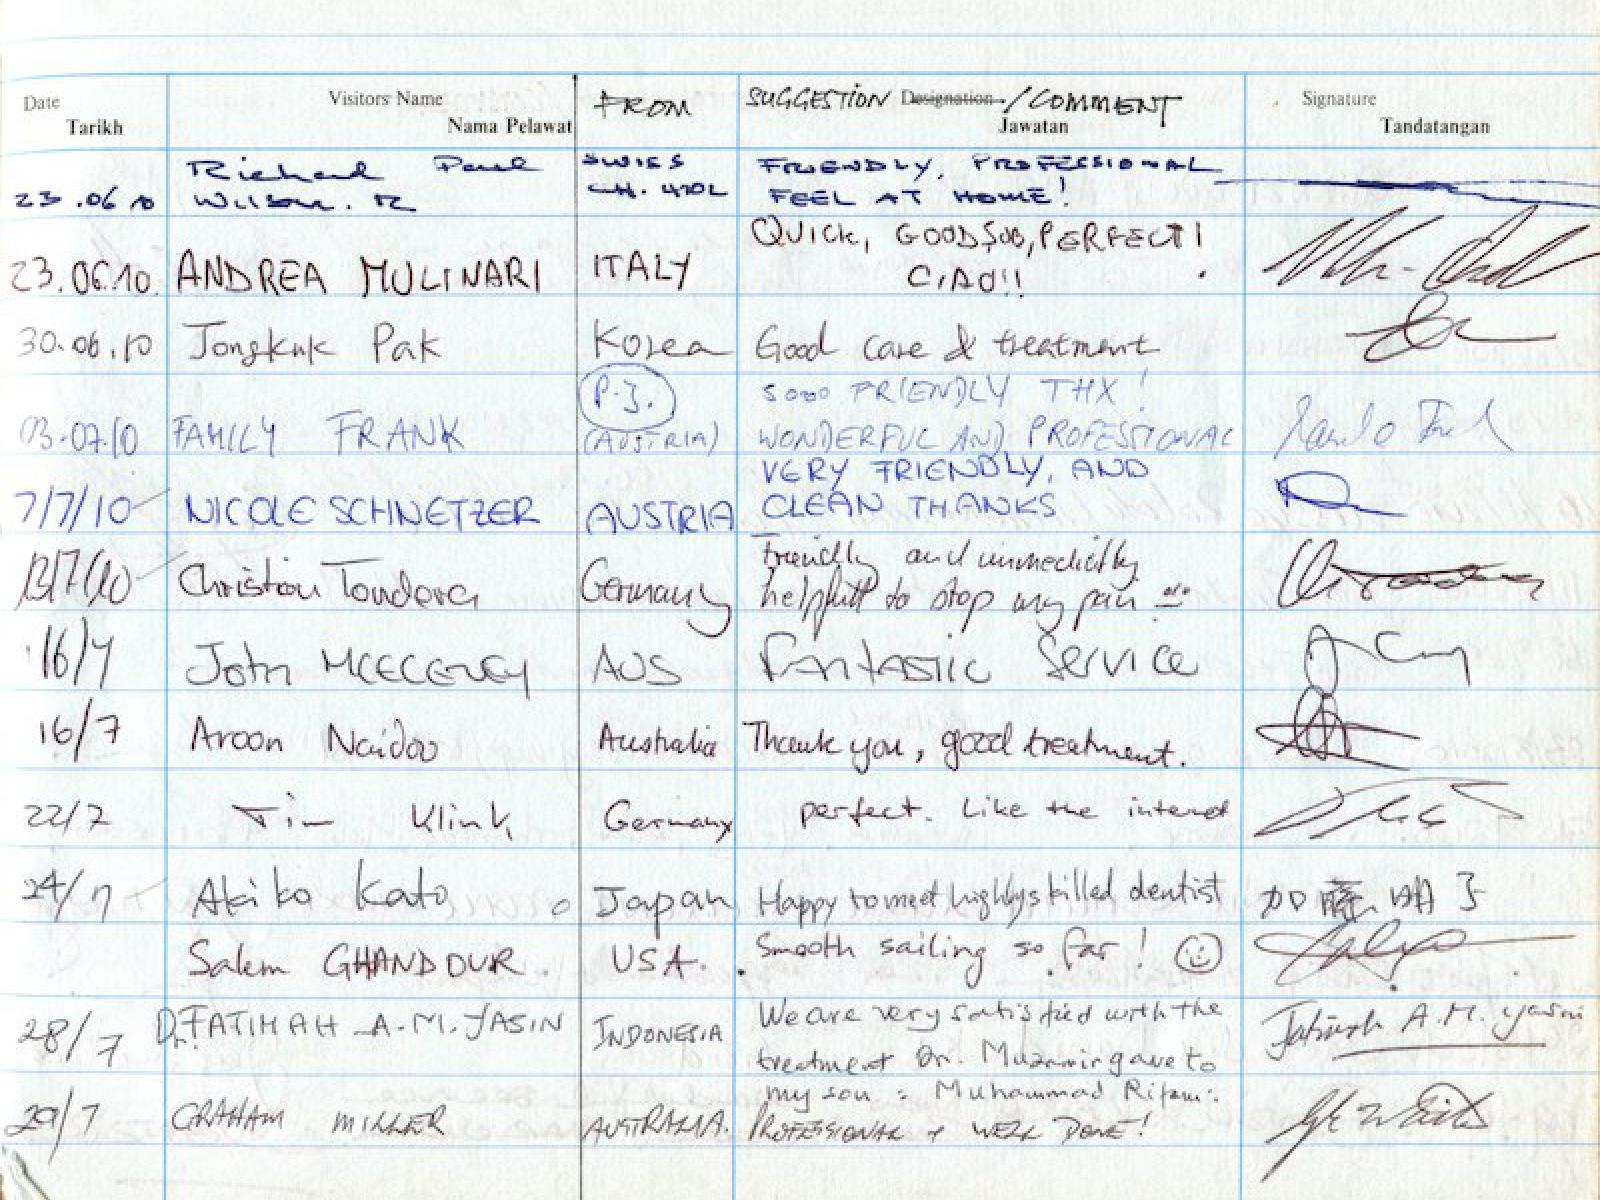 Date Visitors Name FROM SUGGESTION Designation /COMMENT Signature
Tarikh Nama Pelawat Jawatan Tandatangan
Richard Paul SWISS FRIENDLY, PROFESSIONAL
23.06 10 Wilson. R CH. FEEL AT HOME!
QUICK, GOOD JOB, PERFECT!
23.06.10. ANDREA MULINARI ITALY CIAO!!
30.06.10 Jongkuk Pak Korea Good care & treatment
P.J. sooo FRIENDLY THX!
03.07.10 FAMILY FRANK (AUSTRIA) WONDERFUL AND PROFESSIONAL
VERY FRIENDLY, AND
7/7/10 NICOLE SCHNETZER AUSTRIA CLEAN THANKS
Friendly and immediatly
13/7/10 Christian Tondera Germany helpfull to stop my pain
16/7 John AUS FANTASTIC SERVICE
16/7 Aroon Naidoo Australia Thank you, good treatment.
22/7 Tim Klink Germany perfect. Like the internet
24/7 Akiko Kato Japan Happy to meet highly skilled dentist 加藤 明子
Salem GHANDOUR. USA. Smooth sailing so far!
We are very satisfied with the
28/7 Dr. FATIMAH A.M. YASIN INDONESIA Fatimah A.M. Yasin
treatment Dr. Muzammir gave to
my son : Muhammad
29/7 GRAHAM MILLER AUSTRALIA. PROFESSIONAL + WELL DONE!